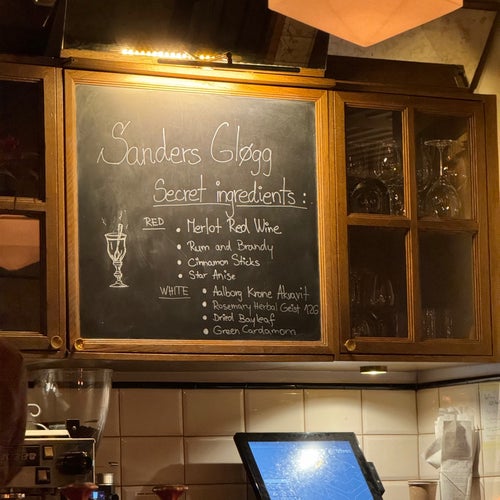 Sanders Gløgg
Secret ingredients:
RED • Merlot Red Wine
• Rum and Brandy
• Cinnamon Sticks
• Star Anise
WHITE • Aalborg Krone Akvavit
• Rosemary Herbal Geist
• Dried Bayleaf
• Green Cardamom